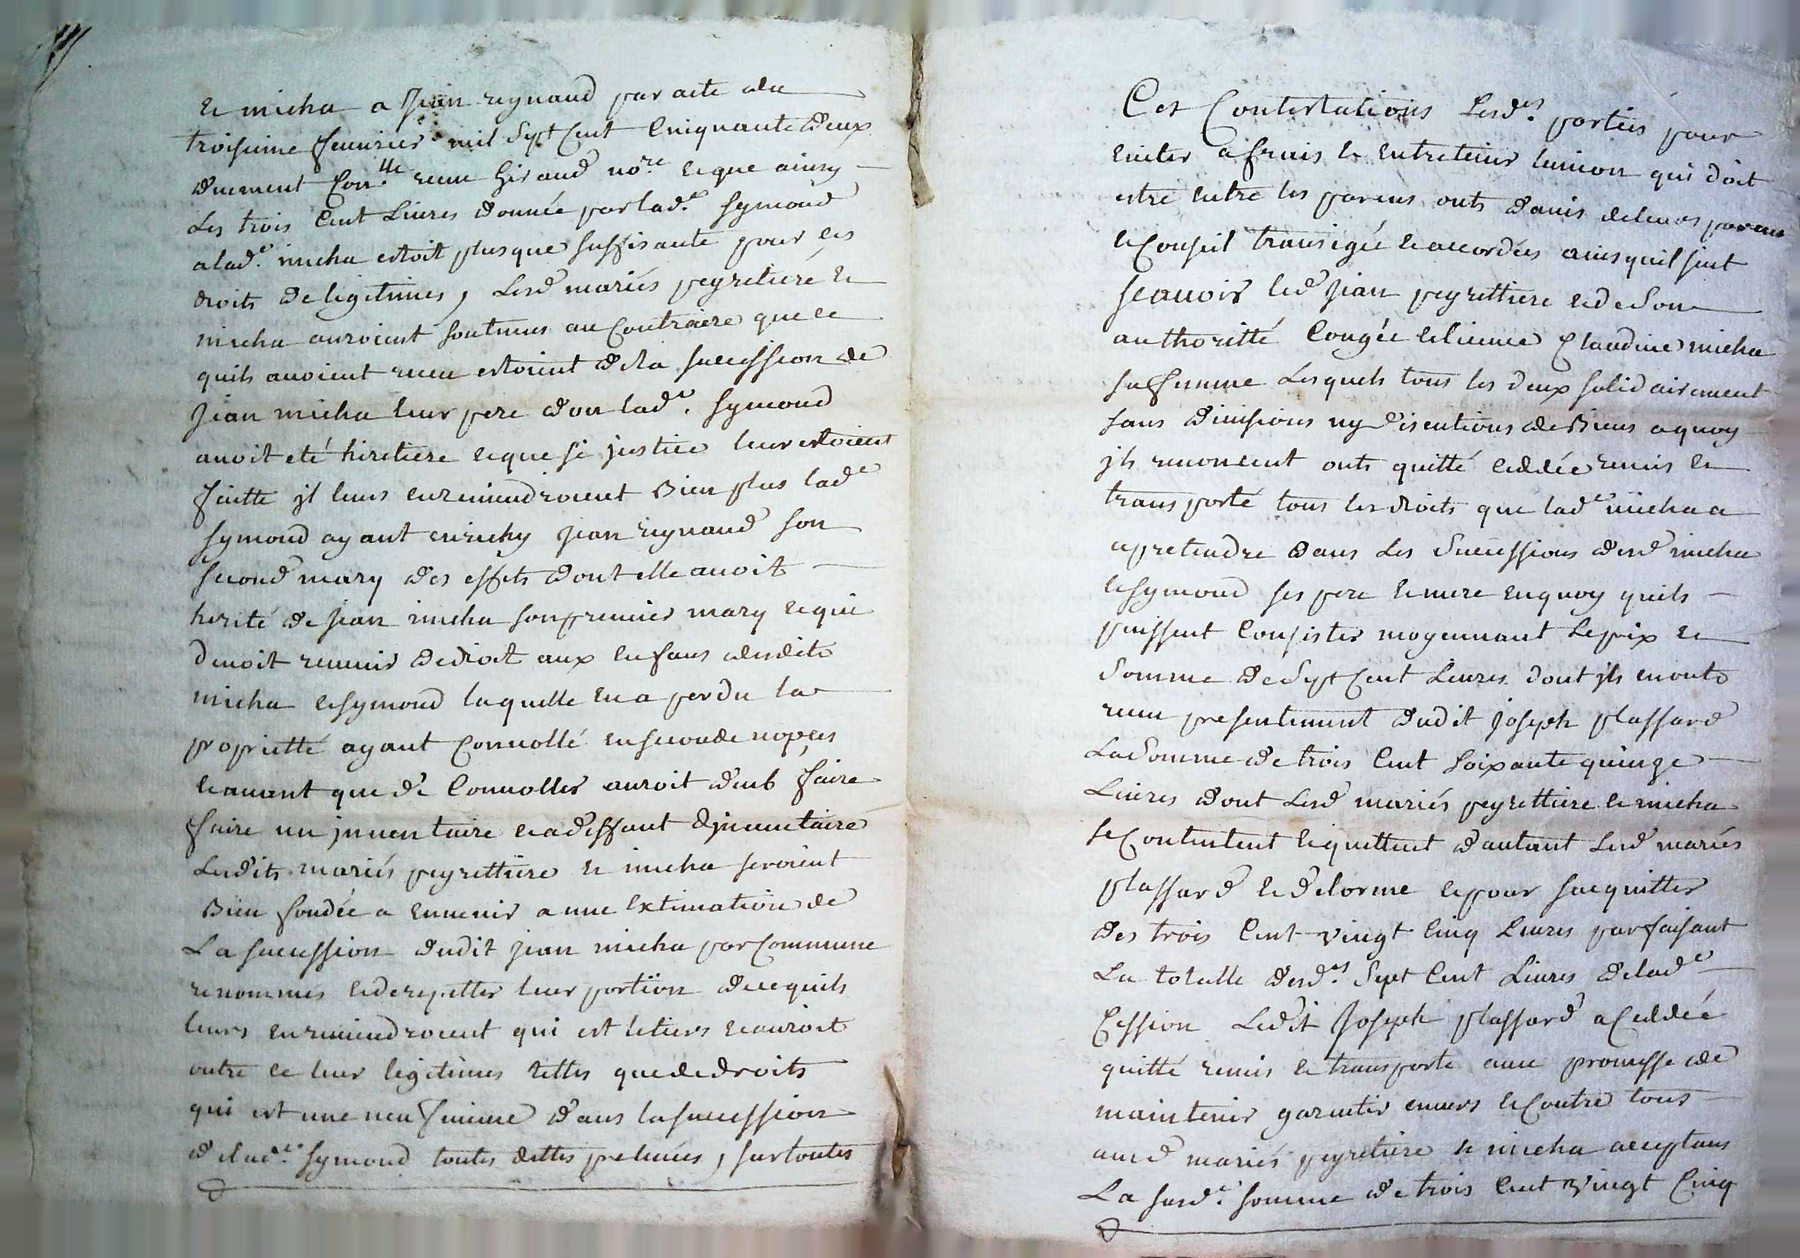 et micha a Jean reynaud par acte du
troisieme feuurier mil Sept Cent Cinquante deux
duement Con.lle receu Giraud no.re et que ainsy
Les trois Cent Liures donnée par lad.e Symond
a lad.e micha estoit plus que suffisante pour les
droits de legitimes, Lesd mariés peyretiere et
micha auroient soutenus au Contraire que ce
quils auoient receu estoient de la succession de
Jean micha leur pere dont lad.e Symond
auoit eté hiretiere et que si justice leur estoient
faitte jl leurs en reuiendroient Bien plus lad.e
Symond ayant enrichy Jean reynaud son
second mary des effets dont elle auoit
herité de Jean micha son premier mary et qui
deuoit reuenir de droit aux enfans desdits
micha et Symond laquelle en a perdu la
proprietté ayant Conuollé en seconde nopces
et auant que de Conuoller auroit deub faire
faire un jnuentaire et a deffaut djnuentaire
Lesdits mariés peyrettiere et micha seroient
Bien fondée a en uenir a une Extimation de
La succession dudit jean micha par Commune
renommés et de repetter leur portion de ce quils
leurs en reuiendroient qui est le tiers et auroit
outre ce leur legitimes telles que de droits
qui est une neufuieme dans la succession
de lad.e Symond toutes dettes preleuées, sur toutes
Ces Contestations Lesd.es parties pour
euiter a frais et entretenir lunion qui doit
estre entre les parens onts dauis de leurs parens
et Conseil transigée et accordées ainsy quil suit
scauoir led Jean peyrettiere et de son
authoritté Congée et licence Claudine micha
sa femme Lesquels tous les deux solidairement
sans diuisions ny discutions de Biens a quoy
jls renoncent onts quitté ceddée remis et
transporté tous les droits que lad.e micha a
a pretendre dans les Successions desd micha
et Symond ses pere et mere en quoy quils
puissent Consister moyennant le prix et
Somme de Sept Cent Liures dont jls en onts
receu presentement dudit joseph plassard
La Somme de trois Cent soixante quinze
Liures dont Lesd mariés peyrettiere et micha
se Contentent et quittent dautant Lesd mariés
plassard et delorme et pour sacquitter
des trois Cent vingt Cinq Liures parfaisant
La totalle desd.es Sept Cent Liures de lad.e
Cession Ledit Joseph plassard a Ceddée
quitté remis et transporte auec promesse de
maintenir garentir enuers et Contre tous
aux d mariés peyretiere et micha acceptans
La susd.e somme de trois Cent Vingt Cinq